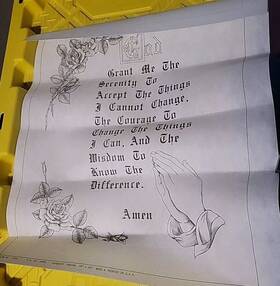 God
Grant Me The
Serenity To
Accept The Things
I Cannot Change,
The Courage To
Change The Things
I Can, And The
Wisdom To
Know The
Difference.
Amen